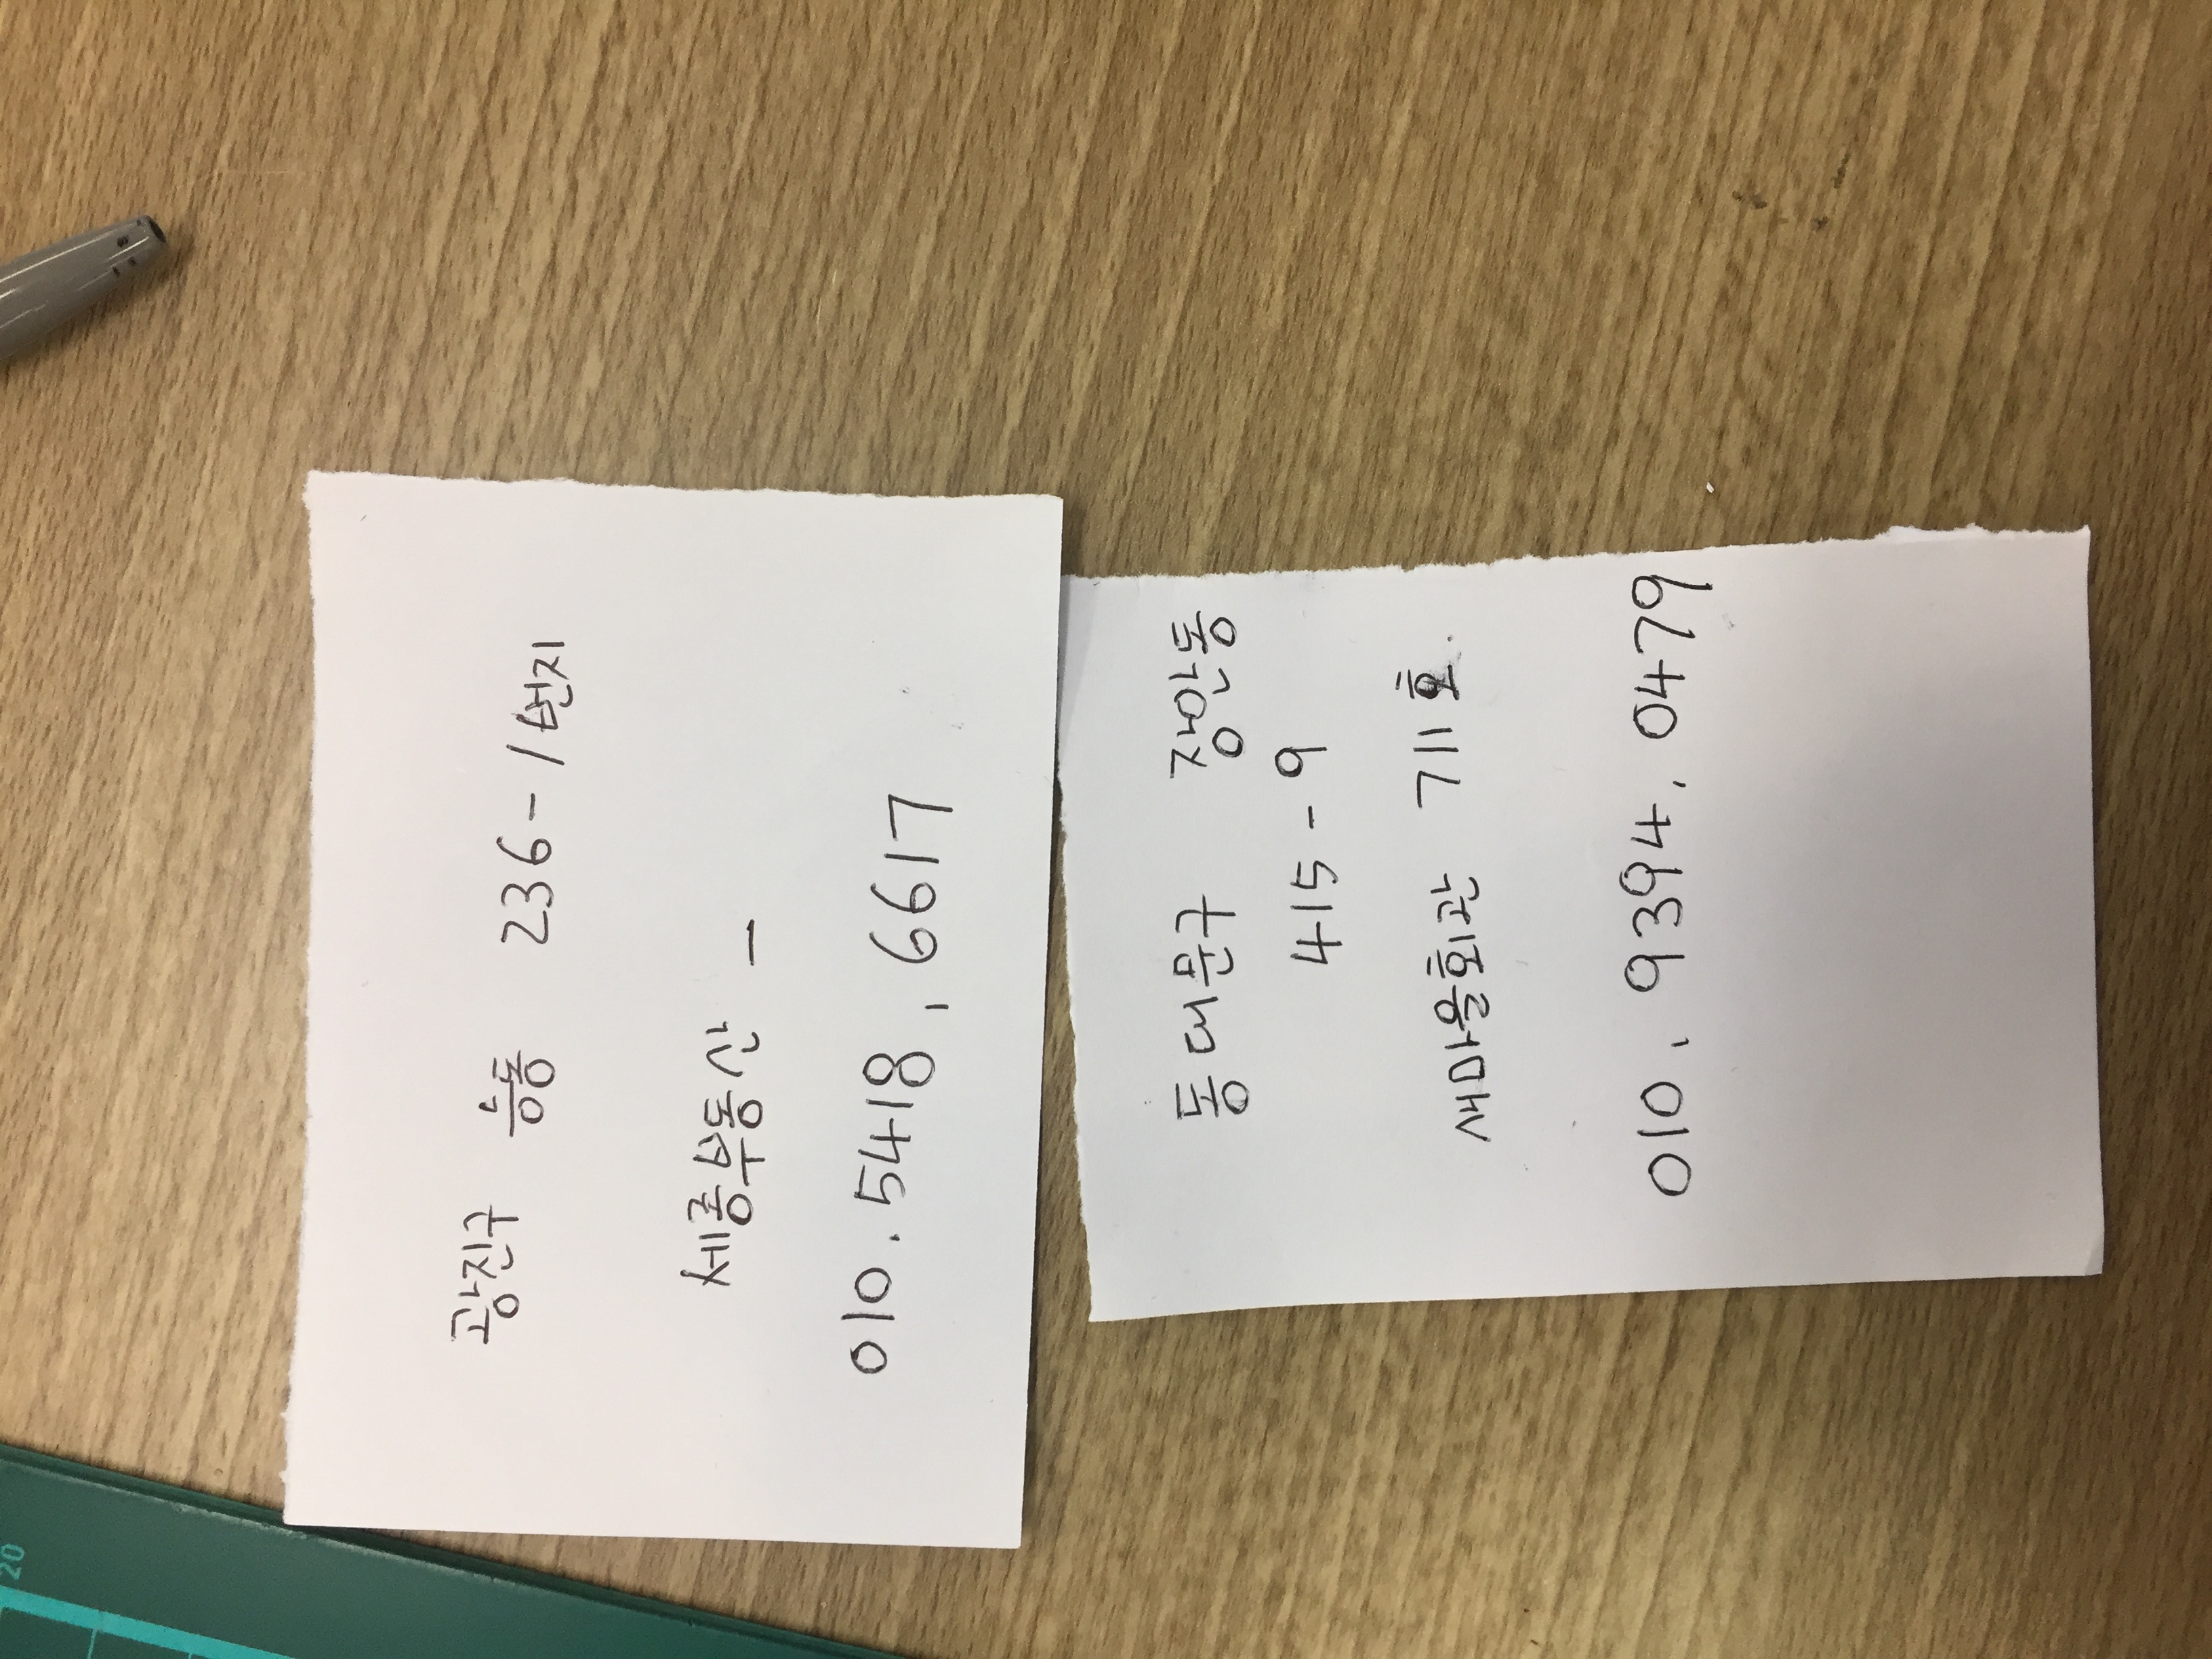 광진구 능동 236-1번지
세종부동산 -
010.5418.6617
동대문구 장안동
415-9
새마을회관 기호.
010.9394.0479
20